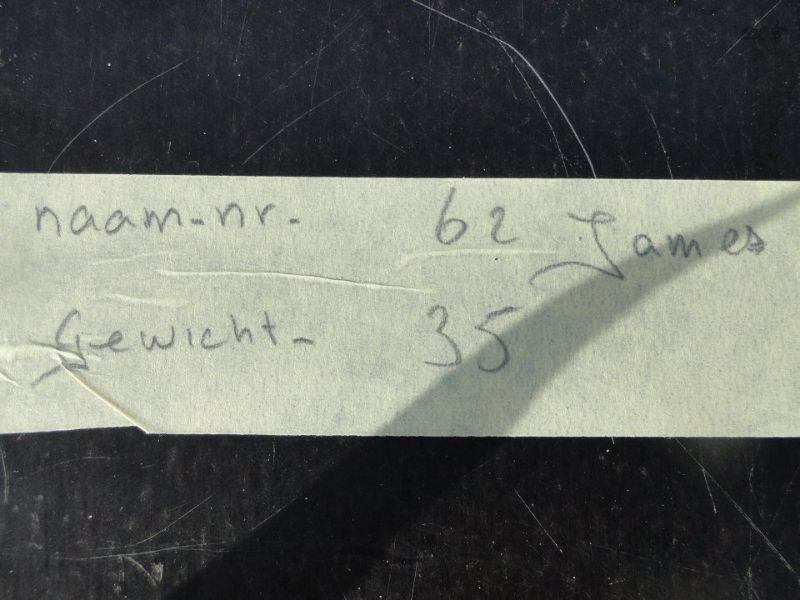 naam-nr. 62 James
Gewicht- 35